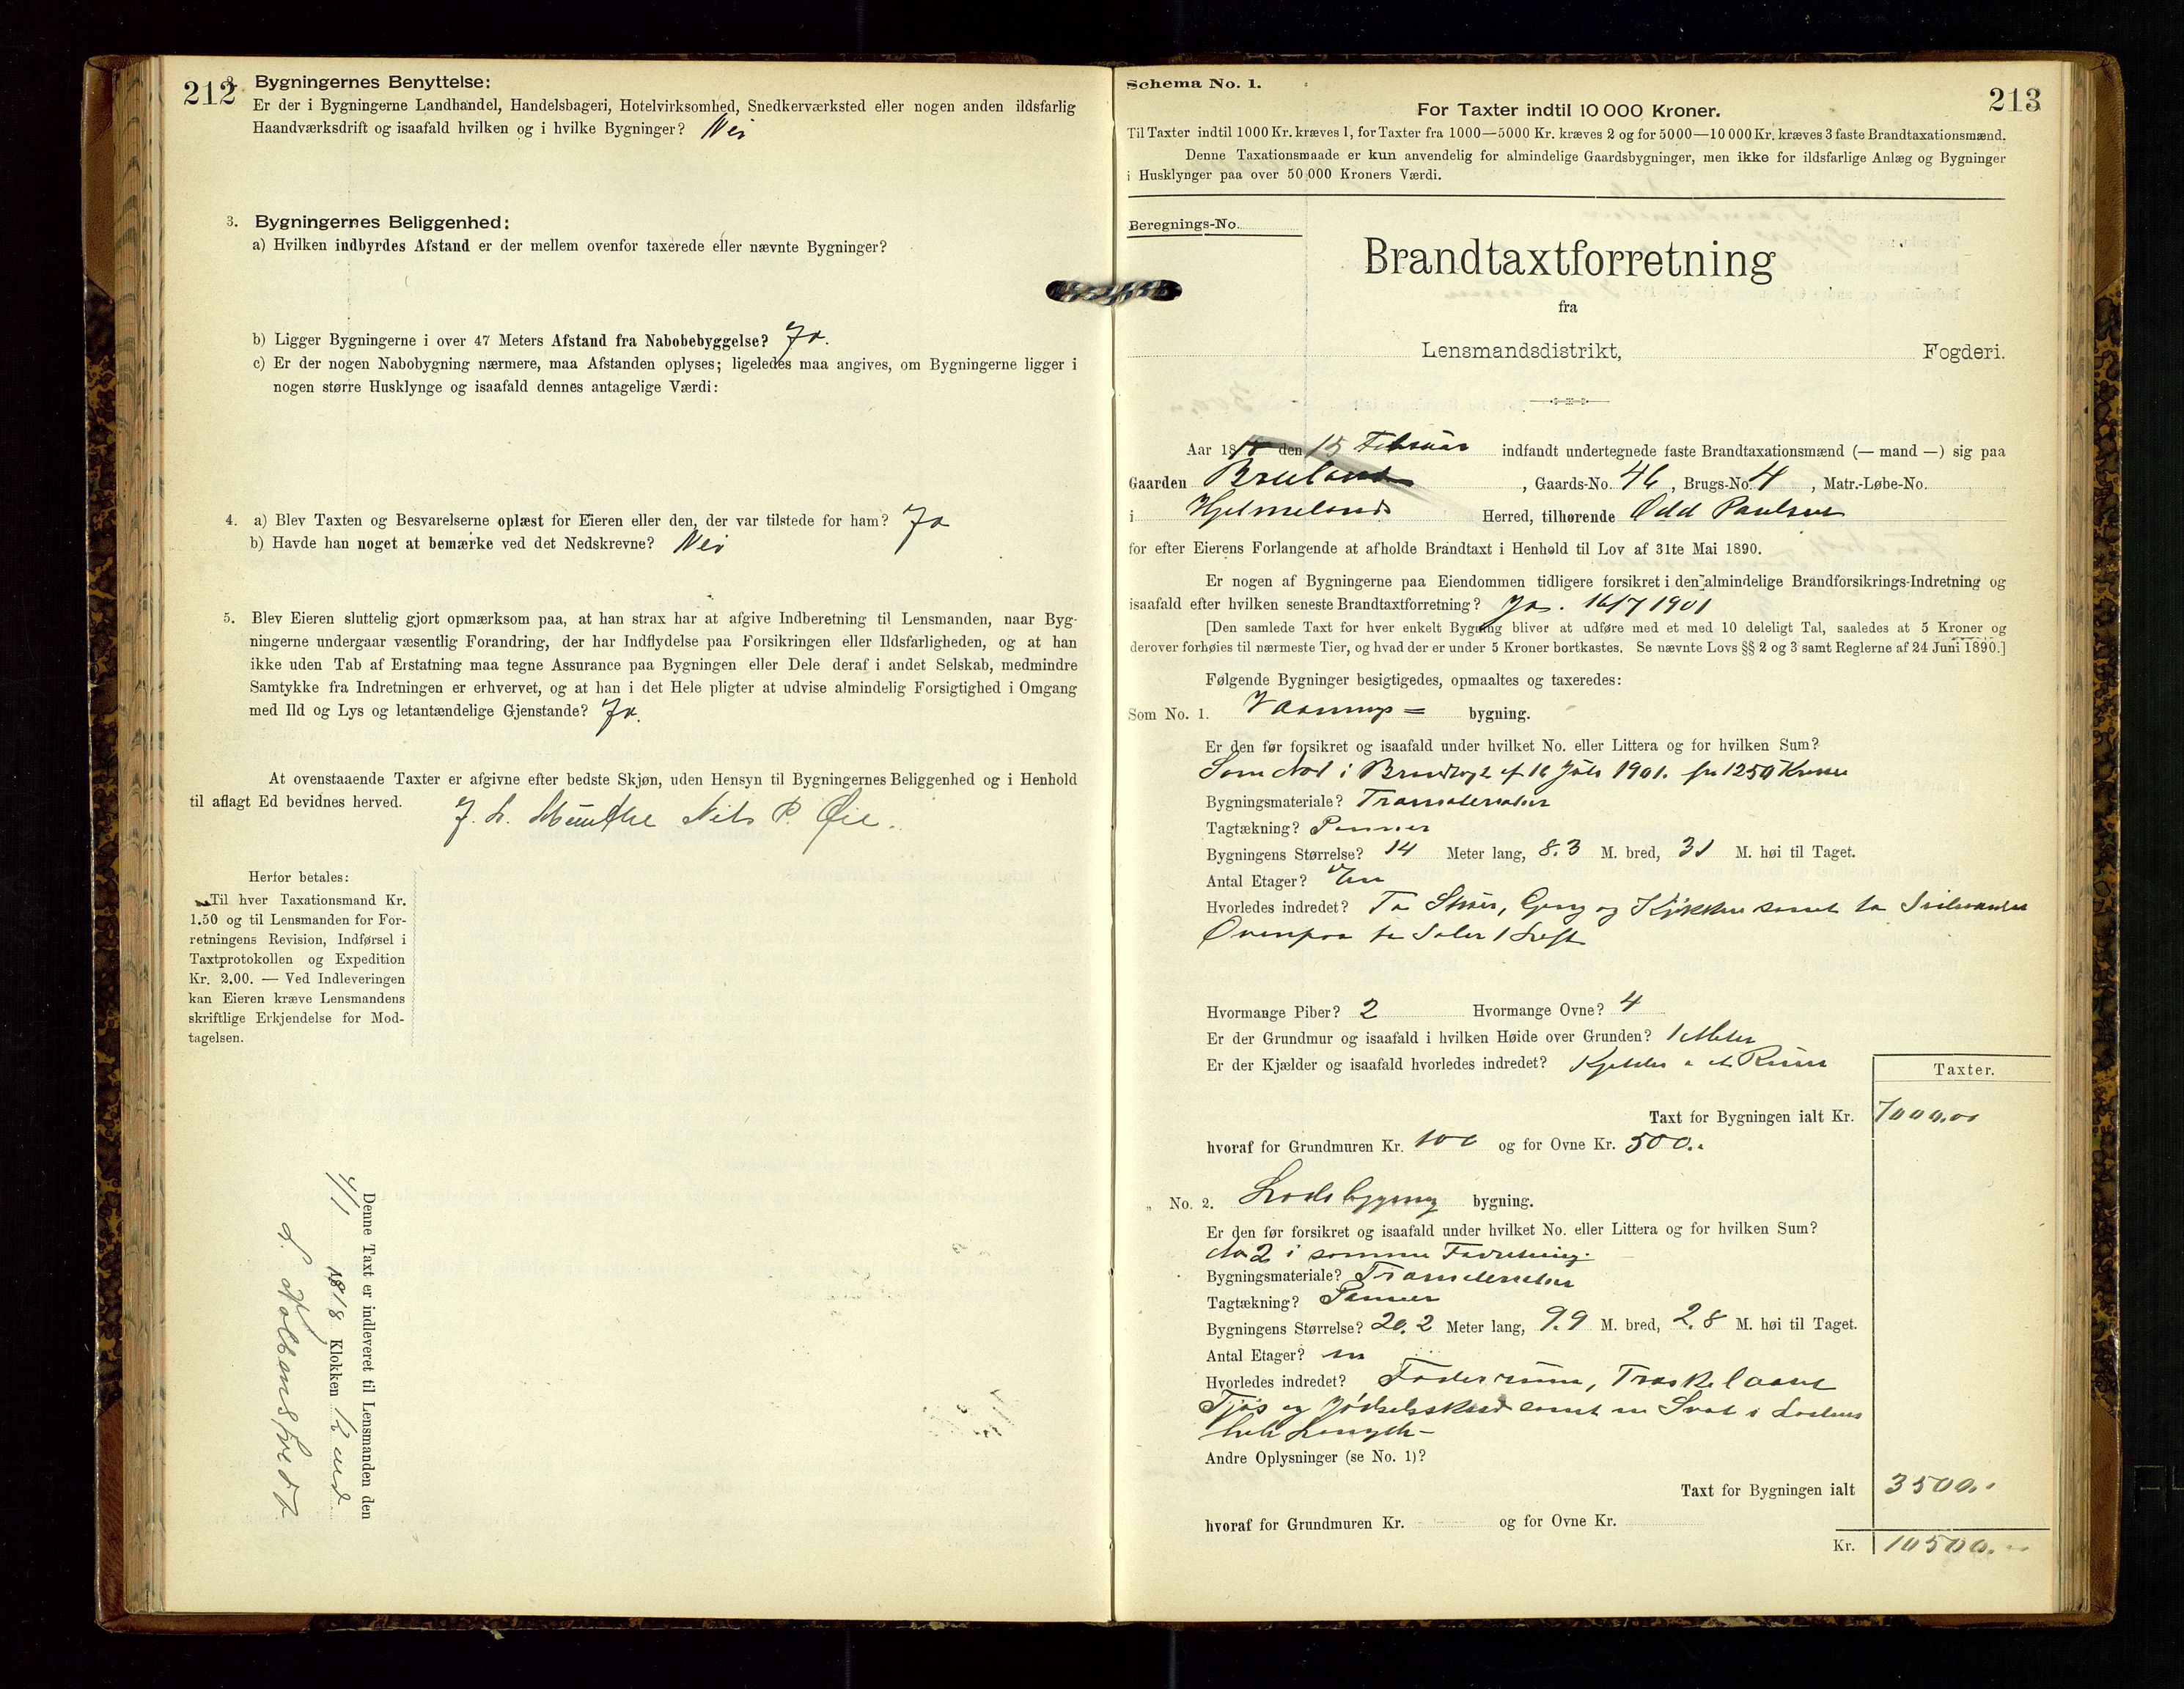 212
2. Bygningernes Benyttelse:
Er der i Bygningerne Landhandel, Handelsbageri, Hotelvirksomhed, Snedkerværksted eller nogen anden ildsfarlig
Haandværksdrift og isaafald hvilken og i hvilke Bygninger? Nei
3. Bygningernes Beliggenhed:
a) Hvilken indbyrdes Afstand er der mellem ovenfor taxerede eller nævnte Bygninger?
b) Ligger Bygningerne i over 47 Meters Afstand fra Nabobebyggelse? Ja.
c) Er der nogen Nabobygning nærmere, maa Afstanden oplyses; ligeledes maa angives, om Bygningerne ligger i
nogen større Husklynge og isaafald dennes antagelige Værdi:
4. a) Blev Taxten og Besvarelserne oplæst for Eieren eller den, der var tilstede for ham? Ja
b) Havde han noget at bemærke ved det Nedskrevne? Nei
5. Blev Eieren sluttelig gjort opmærksom paa, at han strax har at afgive Indberetning til Lensmanden, naar Byg-
ningerne undergaar væsentlig Forandring, der har Indflydelse paa Forsikringen eller Ildsfarligheden, og at han
ikke uden Tab af Erstatning maa tegne Assurance paa Bygningen eller Dele deraf i andet Selskab, medmindre
Samtykke fra Indretningen er erhvervet, og at han i det Hele pligter at udvise almindelig Forsigtighed i Omgang
med Ild og Lys og letantændelige Gjenstande? Ja.
At ovenstaaende Taxter er afgivne efter bedste Skjøn, uden Hensyn til Bygningernes Beliggenhed og i Henhold
til aflagt Ed bevidnes herved.
Nils P. Øie.
Herfor betales:
Til hver Taxationsmand Kr.
1.50 og til Lensmanden for For-
retningens Revision, Indførsel i
Taxtprotokollen og Expedition
Kr. 2.00. — Ved Indleveringen
kan Eieren kræve Lensmandens
skriftlige Erkjendelse for Mod-
tagelsen.
Denne Taxt er indleveret til Lensmanden den
4/1 1918 Klokken 12
213
Schema No. 1.
For Taxter indtil 10 000 Kroner.
Til Taxter indtil 1000 Kr. kræves 1, for Taxter fra 1000—5000 Kr. kræves 2 og for 5000—10 000 Kr. kræves 3 faste Brandtaxationsmænd.
Denne Taxationsmaade er kun anvendelig for almindelige Gaardsbygninger, men ikke for ildsfarlige Anlæg og Bygninger
i Husklynger paa over 50 000 Kroners Værdi.
Beregnings-No.
Brandtaxtforretning
fra
Lensmandsdistrikt, Fogderi.
Aar 18 den 15 Februar indfandt undertegnede faste Brandtaxationsmænd (— mand —) sig paa
Gaarden , Gaards-No. 46, Brugs-No. 4, Matr.-Løbe-No.
i Hjelmelands Herred, tilhørende Odd Paulsen
for efter Eierens Forlangende at afholde Brandtaxt i Henhold til Lov af 31te Mai 1890.
Er nogen af Bygningerne paa Eiendommen tidligere forsikret i den almindelige Brandforsikrings-Indretning og
isaafald efter hvilken seneste Brandtaxtforretning? Ja. 16/7 1901
[Den samlede Taxt for hver enkelt Bygning bliver at udføre med et med 10 deleligt Tal, saaledes at 5 Kroner og
derover forhøies til nærmeste Tier, og hvad der er under 5 Kroner bortkastes. Se nævnte Lovs §§ 2 og 3 samt Reglerne af 24 Juni 1890.]
Følgende Bygninger besigtigedes, opmaaltes og taxeredes:
Som No. 1. Vaanings= bygning.
Er den før forsikret og isaafald under hvilket No. eller Littera og for hvilken Sum?
Som No 1 i Brandtaxt af 16 Juli 1901. for 1250 Kroner
Bygningsmateriale? Træmaterialier
Tagtækning? Panner
Bygningens Størrelse? 14 Meter lang, 8.3 M. bred, 31 M. høi til Taget.
Antal Etager? En
Hvorledes indredet? To Stuer, Gang og Kjøkken samt to
Ovenpaa to Saler 1 Loft
Hvormange Piber? 2 Hvormange Ovne? 4
Er der Grundmur og isaafald i hvilken Høide over Grunden? 1 Meter
Er der Kjælder og isaafald hvorledes indredet? Kjelder Rum
Taxter.
Taxt for Bygningen ialt Kr. 7000,00
hvoraf for Grundmuren Kr. 100 og for Ovne Kr. 500..
„ No. 2. Lodebygning bygning.
Er den før forsikret og isaafald under hvilket No. eller Littera og for hvilken Sum?
No 2 i samme Forretning.
Bygningsmateriale? Træmaterialier
Tagtækning? Panner
Bygningens Størrelse? 20.2 Meter lang, 9.9 M. bred, 2.8 M. høi til Taget.
Antal Etager? en
Hvorledes indredet? Foderrum, Træskelaave
Fjøs og Gjødselskjeld samt en Sval i Lodens
hele Længde—
Andre Oplysninger (se No. 1)?
Taxt for Bygningen ialt 3500..
hvoraf for Grundmuren Kr. og for Ovne Kr.
Kr. 10500.—